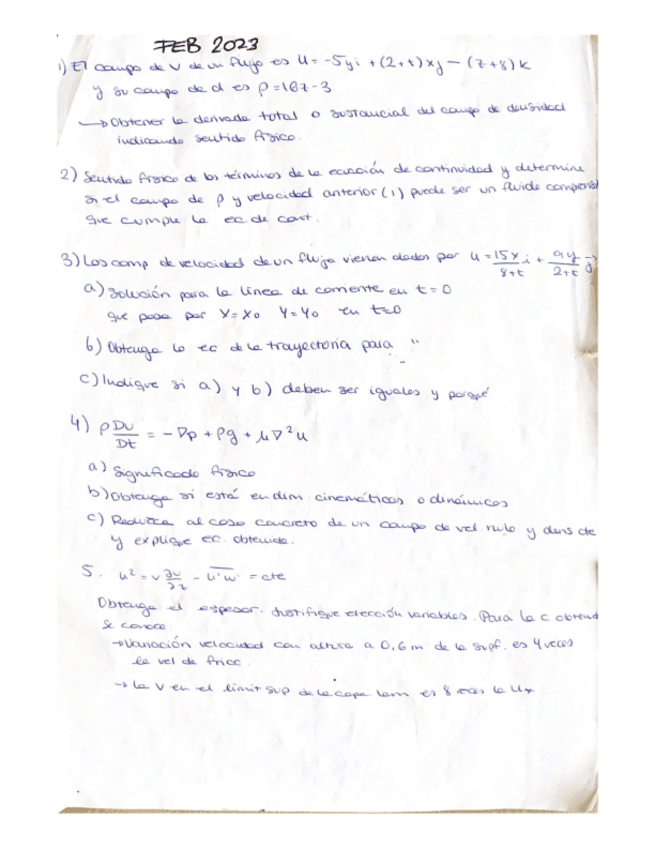 FEB 2023
1) El campo de V de un flujo es U = -5yi + (2+t)xj - (z+8)k
y su campo de d es ρ = 16z - 3
→ Obtener la derivada total o sustancial del campo de densidad
indicando sentido físico.
2) Sentido físico de los términos de la ecuación de continuidad y determine
si el campo de ρ y velocidad anterior (1) puede ser un fluido
que cumple la ec de cont.
3) Los comp de velocidad de un flujo vienen dados por u = 15x/8+t i + 9y/2+t j
a) Solución para la línea de corriente en t = 0
que pasa por X = X₀ Y = Y₀ en t=0
b) Obtenga la ec de la trayectoria para "
c) Indique si a) y b) deben ser iguales y porqué
4) ρ Du/Dt = - ∇p + ρg + μ∇²u
a) Significado físico
b) Obtenga si está en dim. cinemáticas o dinámicas
c) Reduzca al caso concreto de un campo de vel nulo y dens cte
y explique ec. obtenida.
5. u² = ν ∂u/∂z - u'w' = cte
Obtenga el espesor. Justifique elección variables. Para la c obtend
se conoce
→ Variación velocidad con altura a 0,6 m de la supf. es 4 veces
la vel de fricc.
→ la V en el limit sup de la capa lam es 8 veces la U*